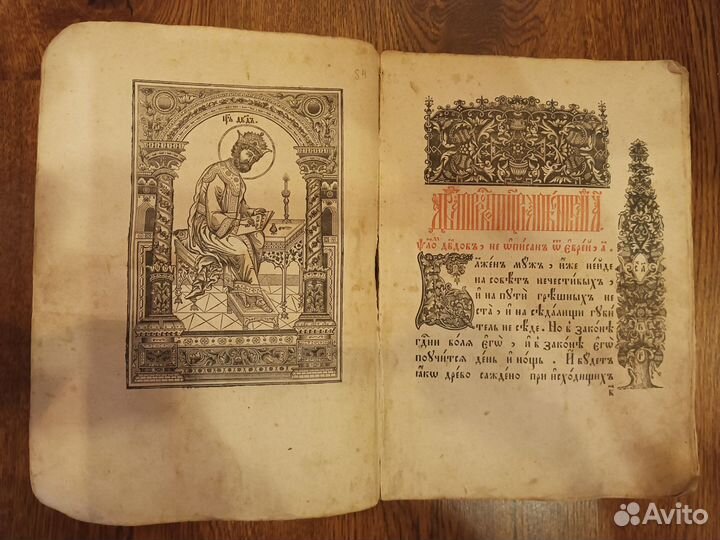 цр҃ь дв҃дъ .
54
ѱало́ дв҃довъ , не ѡ҆пи́санъ ѿ є҆врѣ́й , а҃
Бл҃же́нъ мꙋ́жъ , и҆́же не и҆́де
на совѣ́тъ нечести́выхъ ,
и҆ на пꙋтѝ грѣ́шныхъ не
ста̀ , и҆ на сѣда́лищи гꙋби́
тель не сѣ́де . Но въ зако́нѣ
гдⷭ҇ни во́лѧ є҆гѡ̀ , и҆ въ зако́нѣ є҆гѡ̀
поꙋчи́тсѧ де́нь и҆ но́щь . И҆ бꙋ́детъ
ꙗ҆́кѡ дре́во сажде́но при и҆схо́дищихъ
в
Avito